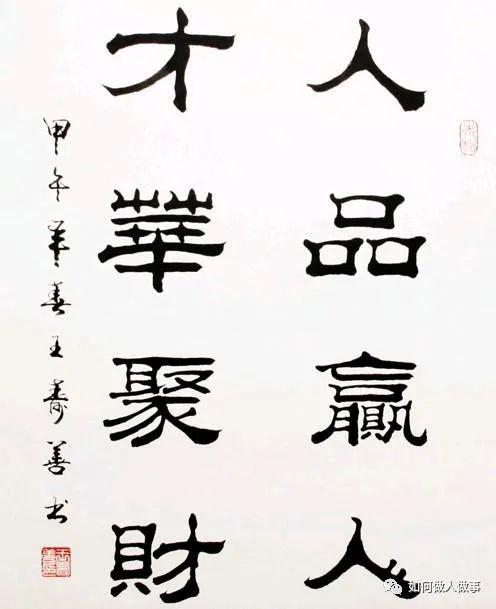 人品贏人
才華聚財
甲午王寿善书
如何做人做事